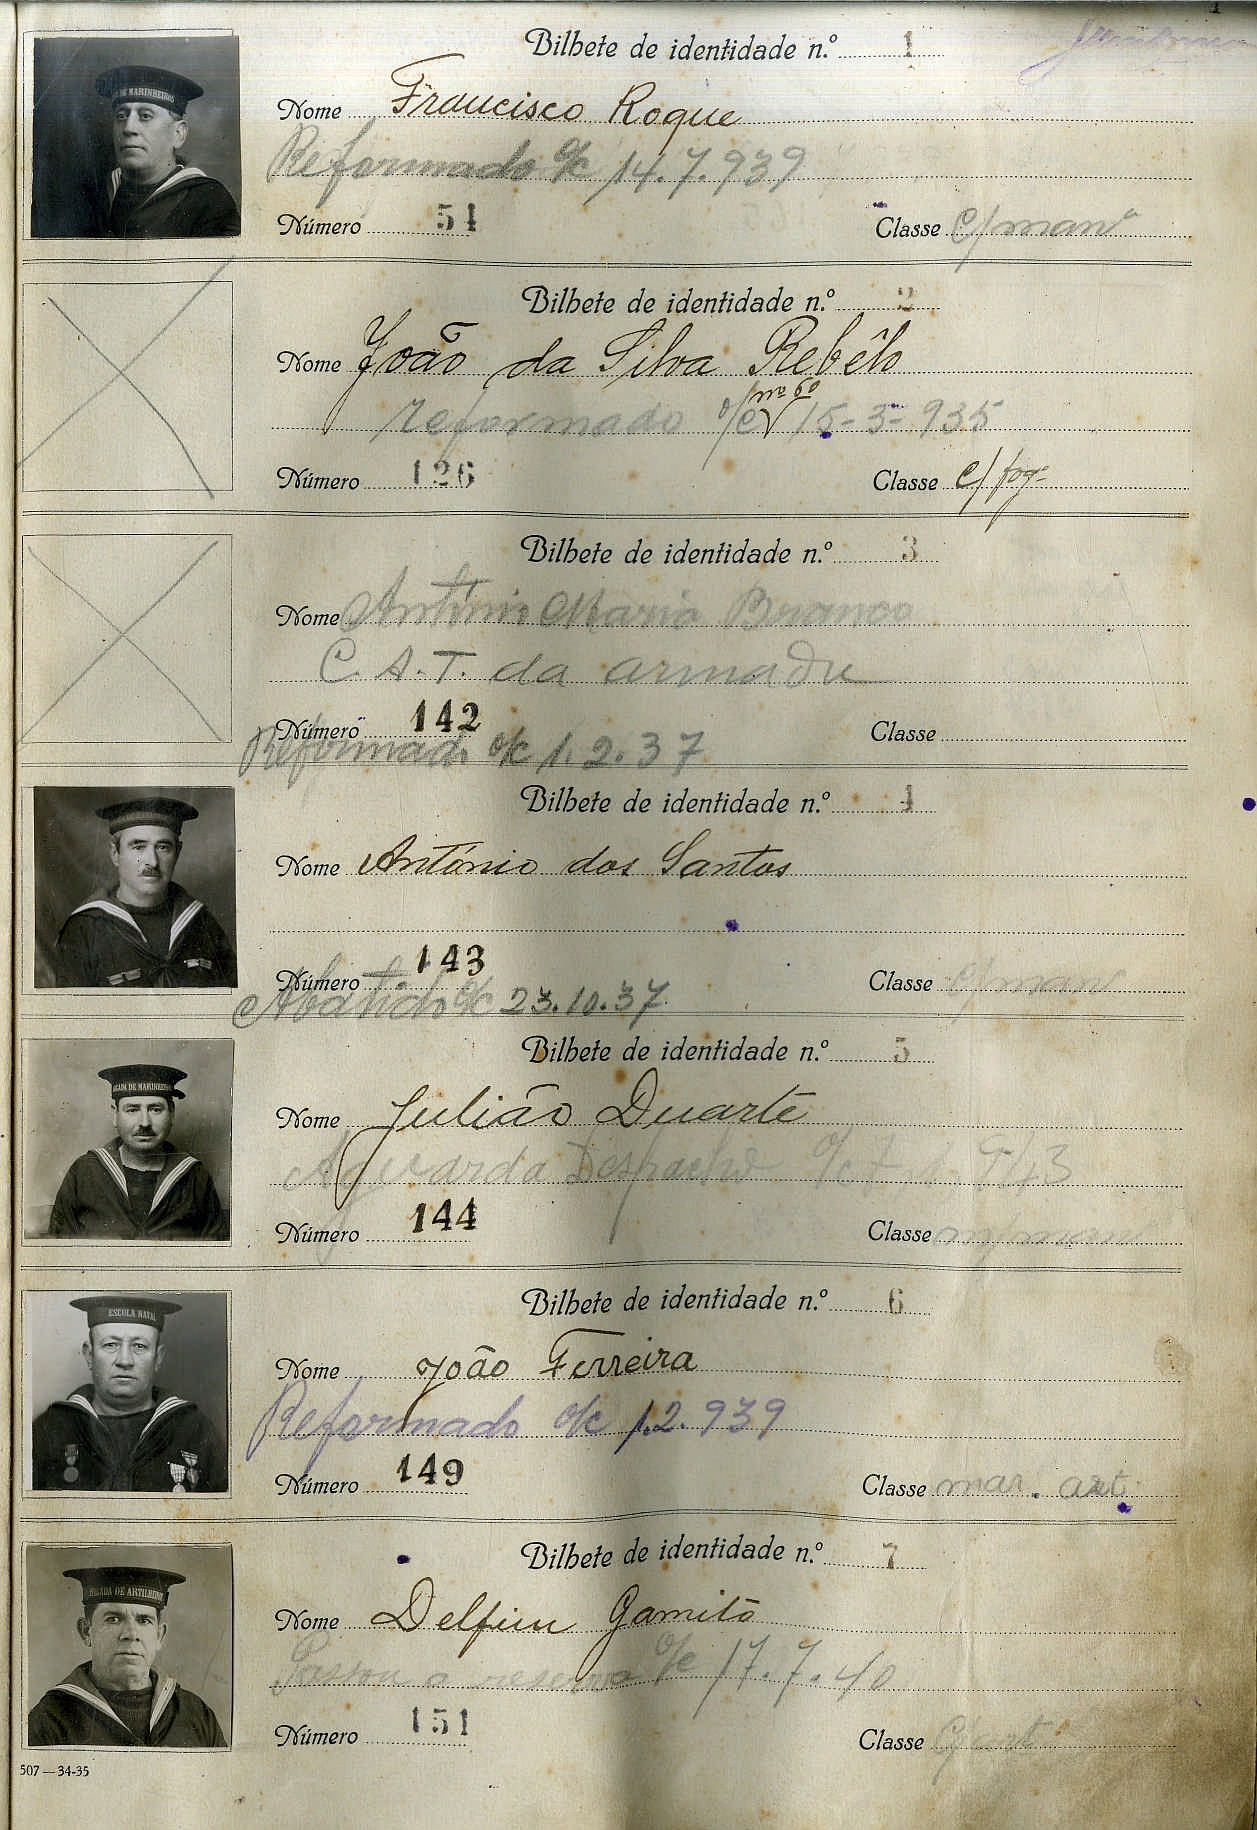 1
Bilhete de identidade n.º 1
DE MARINHEIROS
Nome Francisco Roque
Reformado o/c 14.7.939
Número 51
Classe c/manª
Bilhete de identidade n.º 2
Nome João da Silva Rebêlo
nº 60
reformado o/c 15-3-935
Número 126
Classe c/fog.
Bilhete de identidade n.º 3
Nome António Maria Branco
C. A. T. da armada
Número 142
Classe
Reformado o/c 1.2.37
Bilhete de identidade n.º 4
Nome António dos Santos
Número 143
Classe c/man
Abatido o/c 23.10.37
Bilhete de identidade n.º 5
DE MARINHEIROS
Nome Julião Duarte
Aguarda Despacho o/c 943
Número 144
Classe m/man
Bilhete de identidade n.º 6
ESCOLA NAVAL
Nome João Ferreira
Reformado o/c 1.2.939
Número 149
Classe mar. art.
Bilhete de identidade n.º 7
DE ARTILHEIROS
Nome Delfim Gamito
Passou a reserva o/c 17.7.40
Número 151
Classe c/art.
507 — 34-35